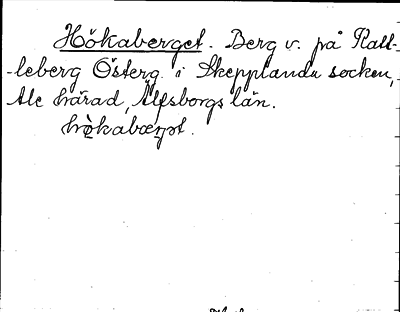 Hökaberget. Berg v. på Rall-
-leberg Österg. i Skepplanda socken,
Ale härad, Älfsborgs län.